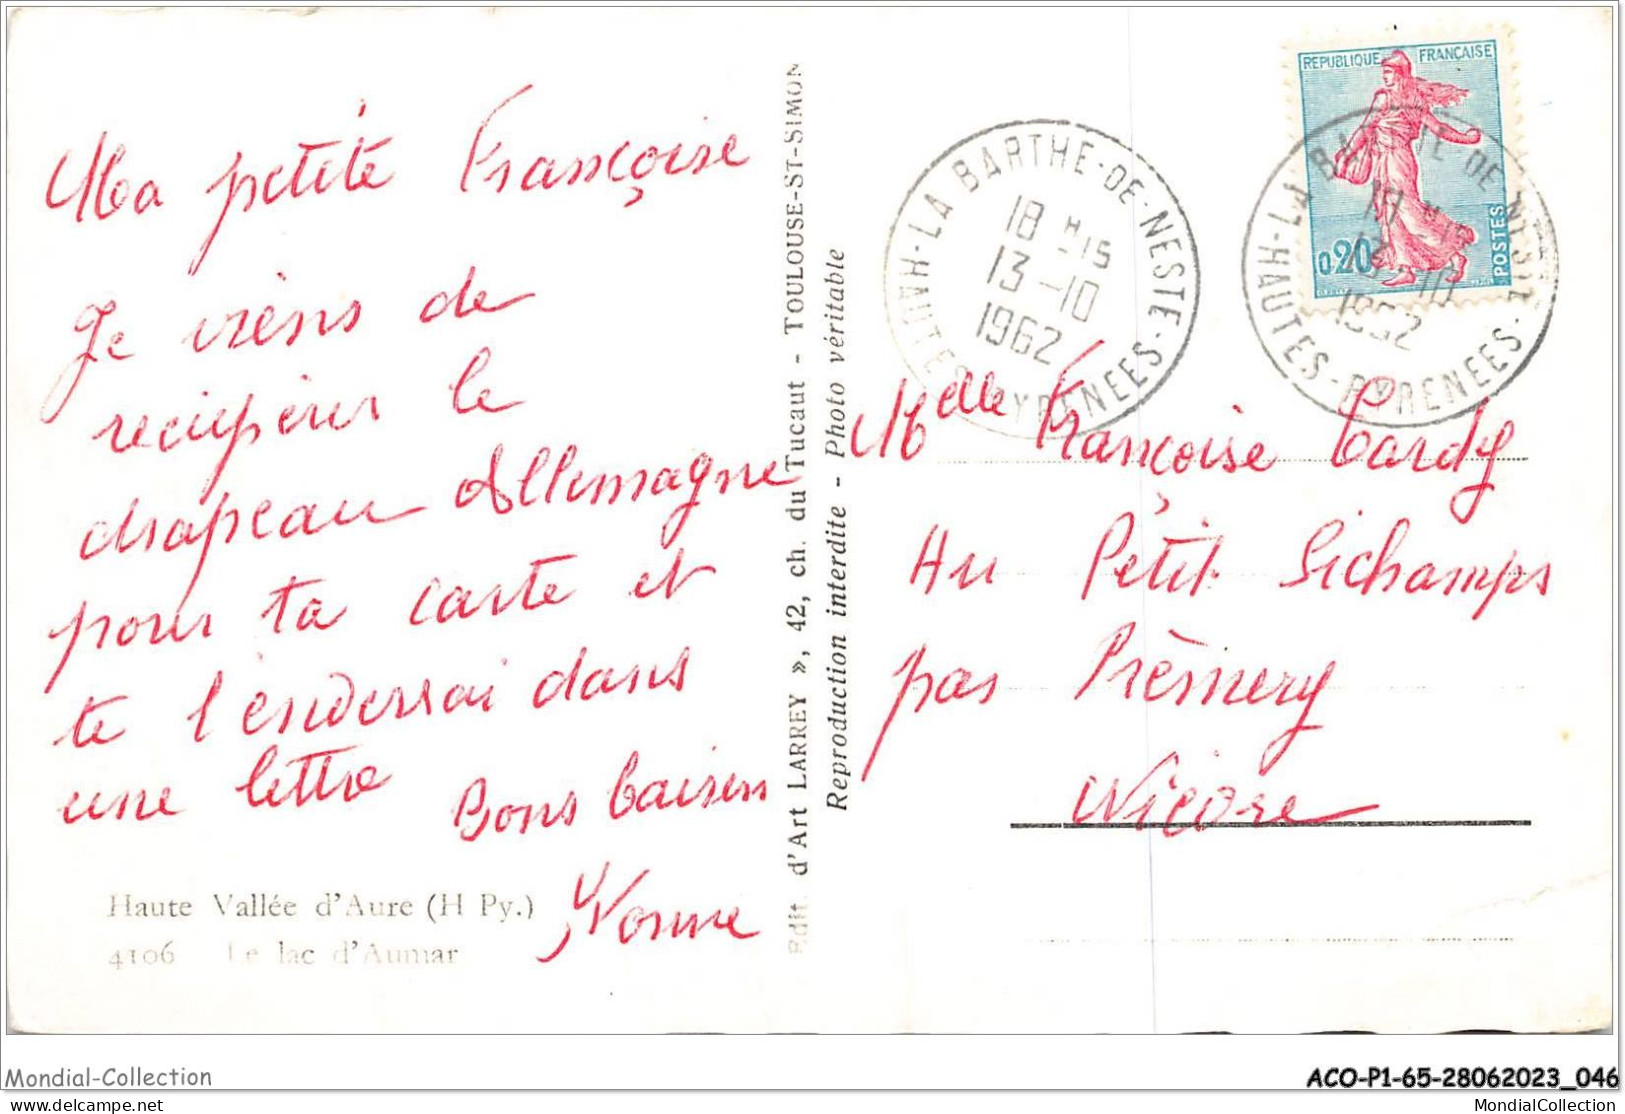 Ma petite Françoise
Je viens de
recupérer le
drapeau Allemagne
pour ta carte et
te l'enverrai dans
une lettre
Bons baisers
Yvonne
Haute Vallée d'Aure (H Py.)
4106 Le lac d'Aumar
Edit. d'Art LARREY », 42, ch. du Tucaut - TOULOUSE-ST-SIMON
Reproduction interdite - Photo véritable
LA BARTHE-DE-NESTE - HAUTES-PYRENEES -
18 H 15
13-10
1962
REPUBLIQUE FRANÇAISE
0,20
POSTES
LA BARTHE-DE-NESTE - HAUTES-PYRENEES -
18 H 15
13-10
1962
Melle Françoise Cardy
Au Petit Sichamps
par Prémery
Nièvre
Mondial-Collection
ACO-P1-65-28062023_046
mondial-collection.com
MondialCollection